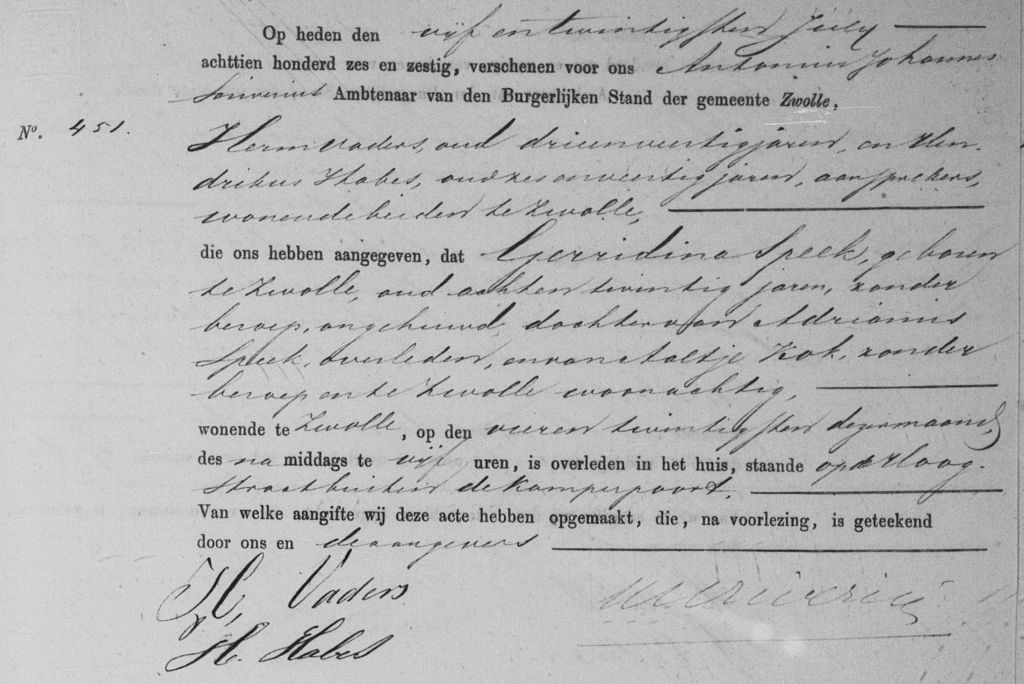 Op heden den vijf en twintigsten July
achttien honderd zes en zestig, verschenen voor ons Antonius Johannes
Ambtenaar van den Burgerlijken Stand der gemeente Zwolle,
No. 451.
Herm Vaders, oud drieenveertig jaren, en Hen-
drikus Habes, oud zes en veertig jaren, aansprekers,
wonende beiden te Zwolle,
die ons hebben aangegeven, dat Gerridina Speek, geboren
te Zwolle, oud acht en twintig jaren, zonder
beroep, ongehuwd, dochter van Adrianus
Speek, overleden, en van Aaltje Kok, zonder
beroep en te Zwolle woonachtig,
wonende te Zwolle, op den vier en twintigsten dezer maand,
des na middags te vijf uren, is overleden in het huis, staande op de Hoog-
straat buiten de Kamperpoort.
Van welke aangifte wij deze acte hebben opgemaakt, die, na voorlezing, is geteekend
door ons en de aangevers
H. Vaders
H. Habes